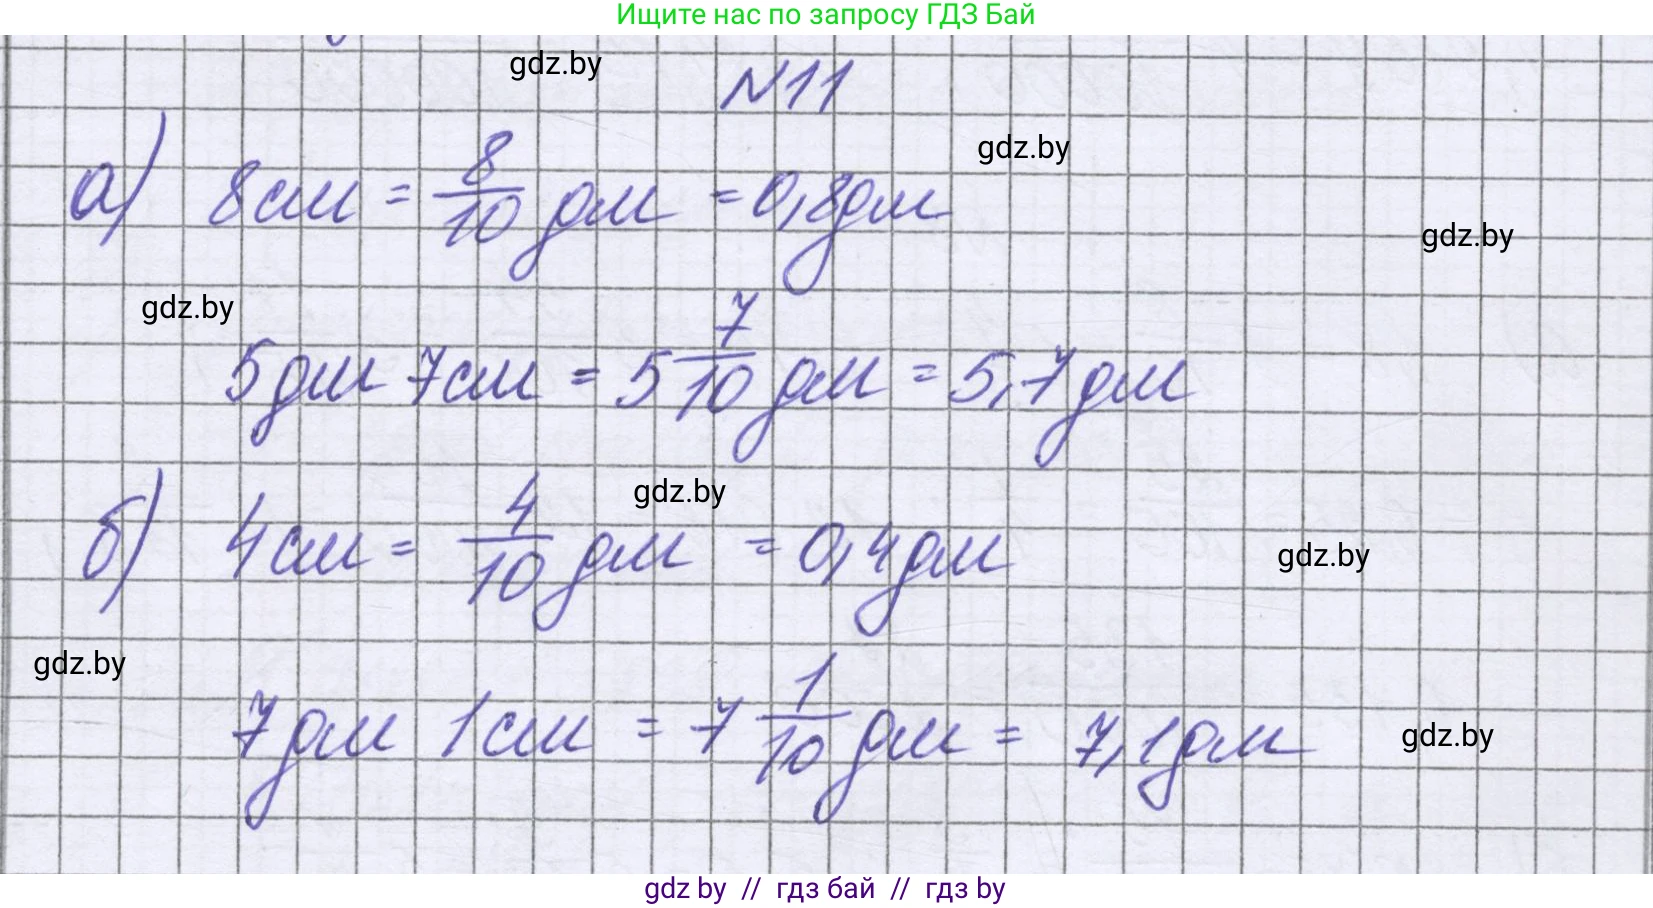 Ищите нас по запросу ГДЗ Бай
gdz.by
N11
gdz.by
а) 8см = 8/10 дм = 0,8дм
gdz.by
gdz.by
5дм 7см = 5 7/10 дм = 5,7дм
gdz.by
б) 4см = 4/10 дм = 0,4дм
gdz.by
gdz.by
7дм 1см = 7 1/10 дм = 7,1дм
gdz.by
gdz by // гдз бай // гдз by